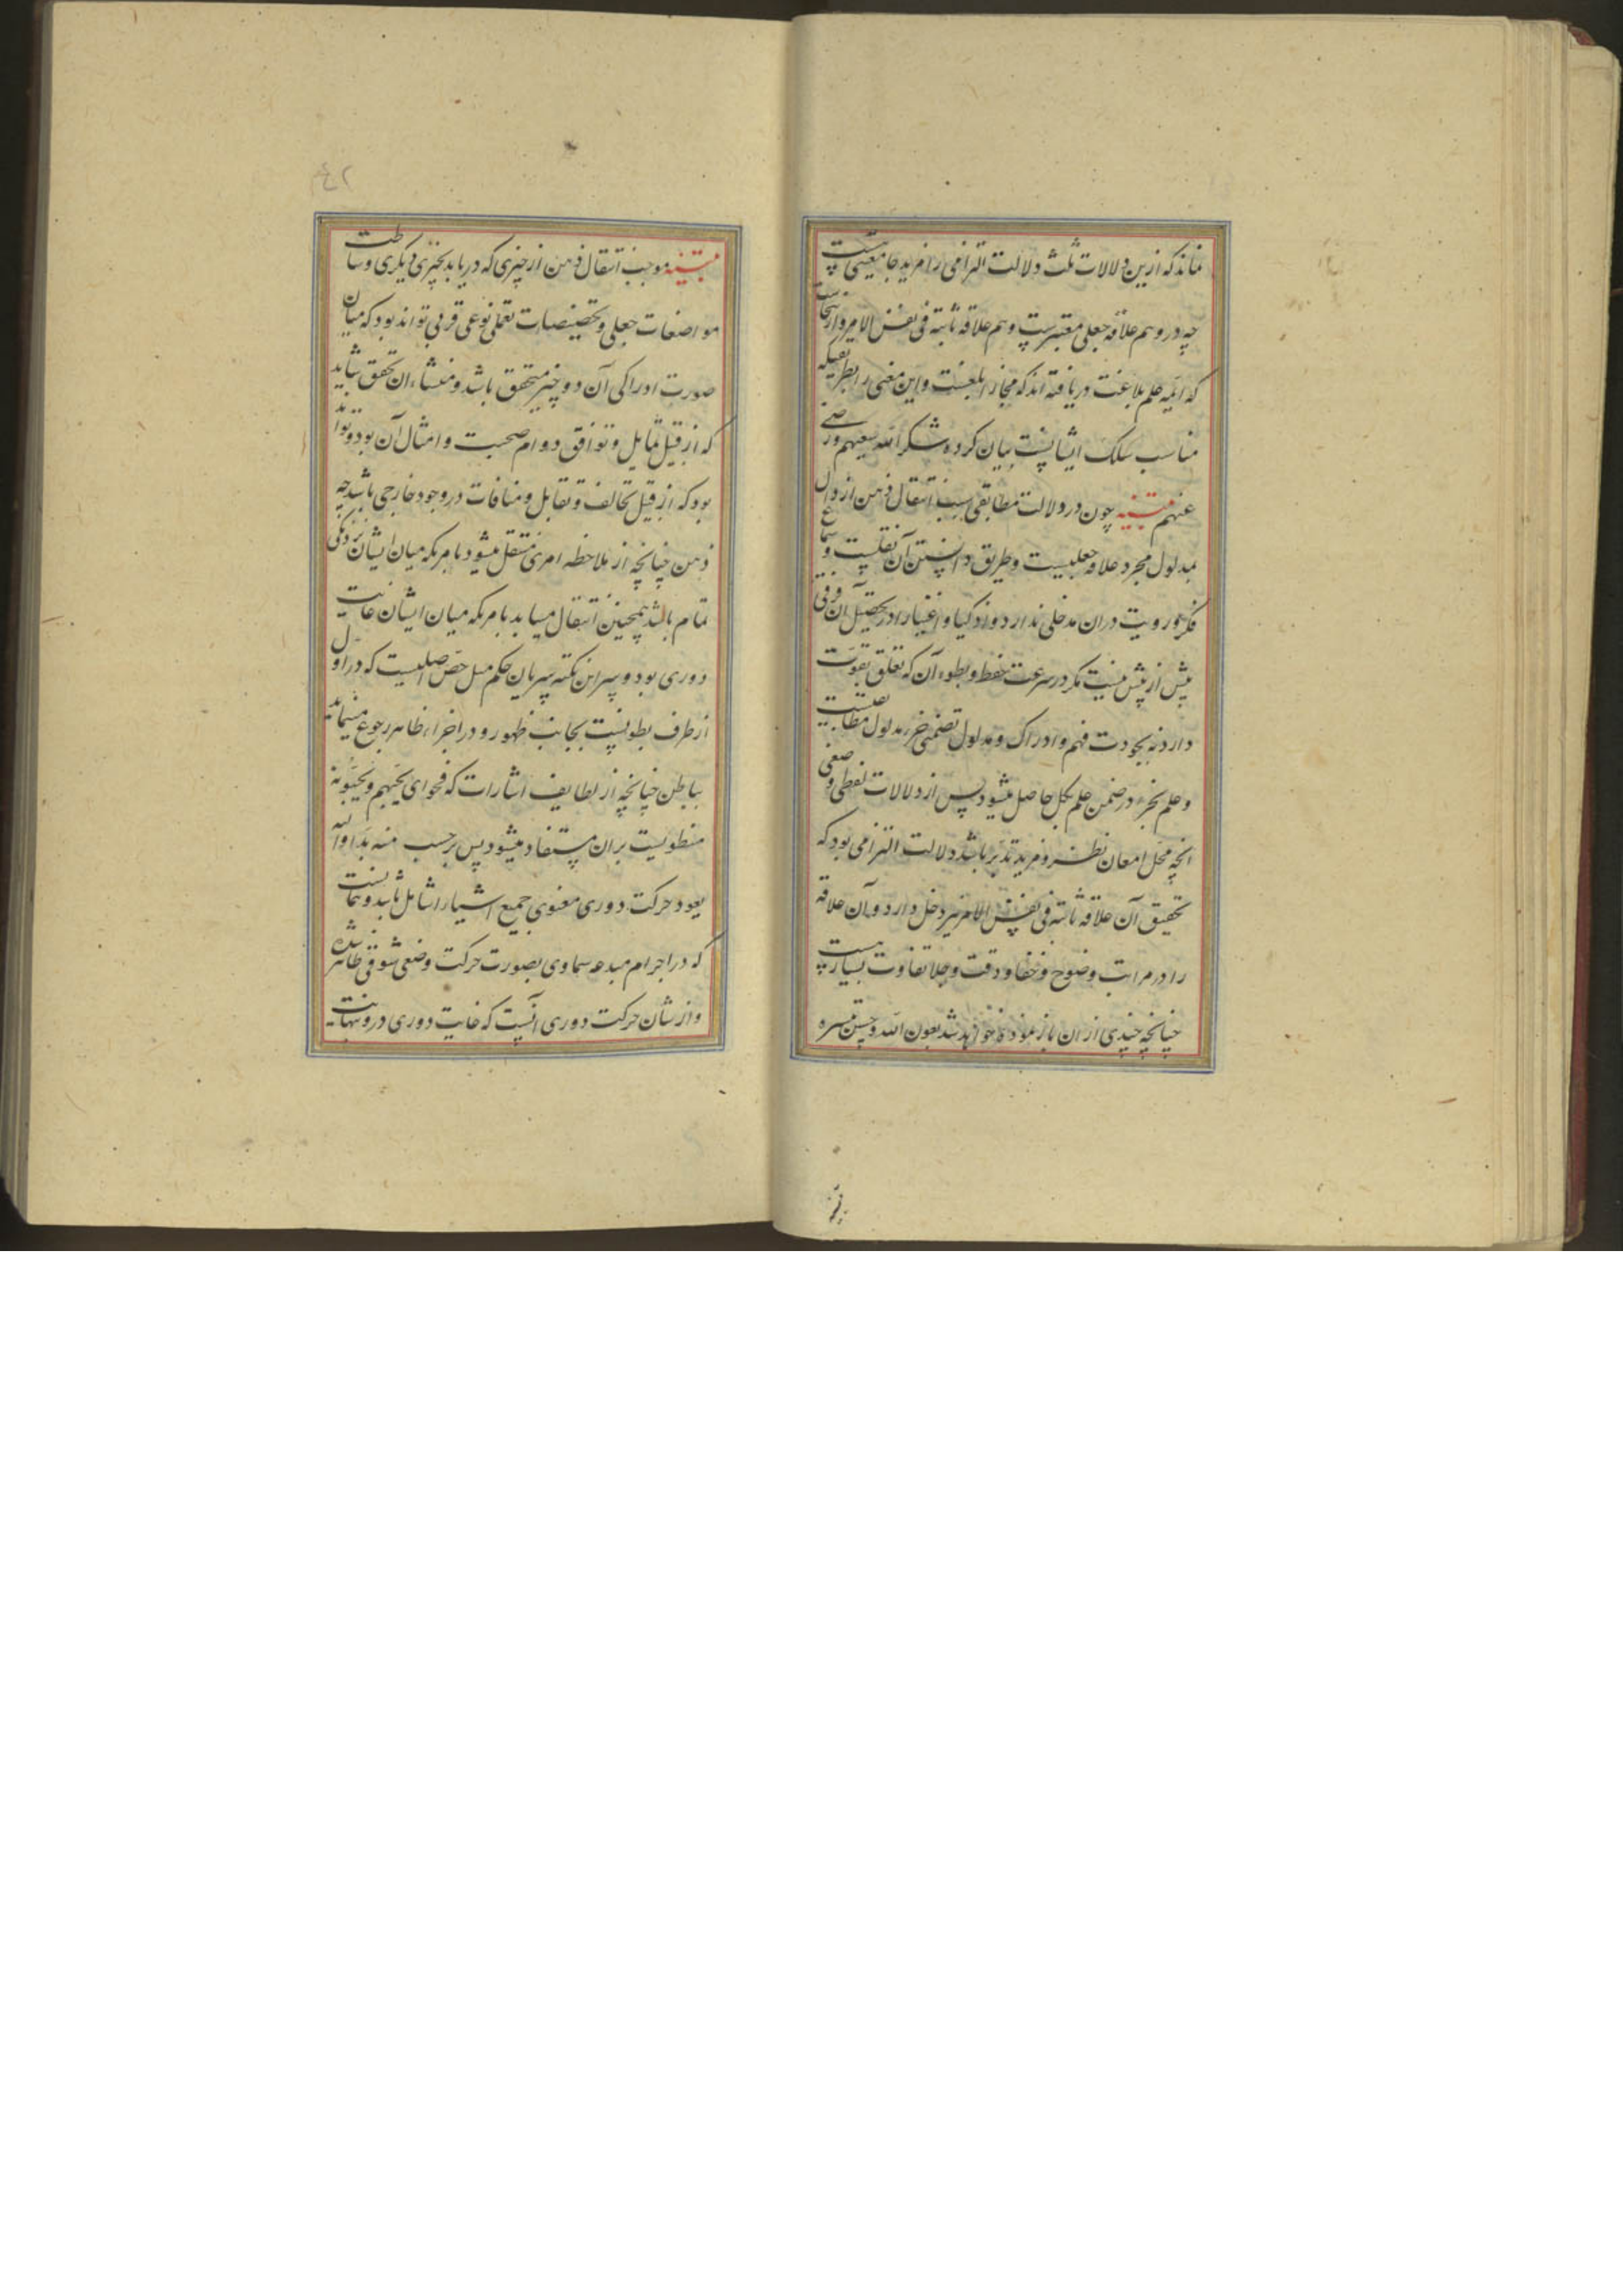 نماند که ازین دلالات ثلث دلالت التزامی را مزید جامعیتی هست
چه درو هم علاقه جعلی معتبرست و هم علاقه ثابته فی نفس الامر و ازینجاست
که ایمه علم بلاغت دریافته اند که مجاز ابلغست و این معنی را بطریقیکه
مناسب سلک ایشانست بیان کرده شکر الله سعیهم و رضی
عنهم تنبیه چون در دلالت مطابقی سبب انتقال ذهن از دال
بمدلول مجرد علاقه جعلیست و طریق دانستن آن نقلست و سماع
فکر و رویت دران مدخلی ندارد و اذکیا و اغبیا را در تحصیل آن فرقی
بیش از پیش نیست مگر در سرعت حفظ و بطوء آن که تعلق بقوت
دارد نه بجودت فهم و ادراک و مدلول تضمنی جزء مدلول مطابقیست
و علم بجزء در ضمن علم بکل حاصل میشود پس از دلالات لفظی وضعی
انچه محل امعان نظر و مزید تدبر باشد دلالت التزامی بود که
تحقیق آن علاقه ثابته فی نفس الامر نیز دخل دارد و آن علاقه
را در مراتب وضوح و خفا و دقت و جلا تفاوت بسیار هست
چنانچه چندی از ان باز نموده خواهد شد بعون الله و حسن تیسیره
٤٢
تنبیه موجب انتقال ذهن از چیزی که دریابد بچیزی دیگر بی وساطت
مواضعات جعلی و تخصیصات تعملی نوعی قربی تواند بود که میان
صورت ادراکی آن دو چیز متحقق باشد و منشاء ان تحقق شاید
که از قبیل تمایل و توافق دوام صحبت و امثال آن بود و تواند
بود که از قبیل تخالف و تقابل و منافات در وجود خارجی باشد چه
ذهن چنانچه از ملاحظه امری منتقل میشود بامریکه میان ایشان نزدیکی
تمام باشد همچنین انتقال مییابد بامریکه میان ایشان غایت
دوری بود و سر این نکته سریان حکم میل اصلیست که در اول
از طرف بطونست بجانب ظهور و در اجزاء ظاهر رجوع مینماید
بباطن چنانچه از لطایف اشارات که فحوای یحبهم و یحبونه
منطویست بران مستفاد میشود پس برحسب منه بدا و الیه
یعود حرکت دوری معنوی جمیع اشیا را شامل باید و نمایست
که در اجرام مبدعه سماوی بصورت حرکت وضعی شوقی ظاهر شده
و از شان حرکت دوری آنست که غایت دوری درو نهایت